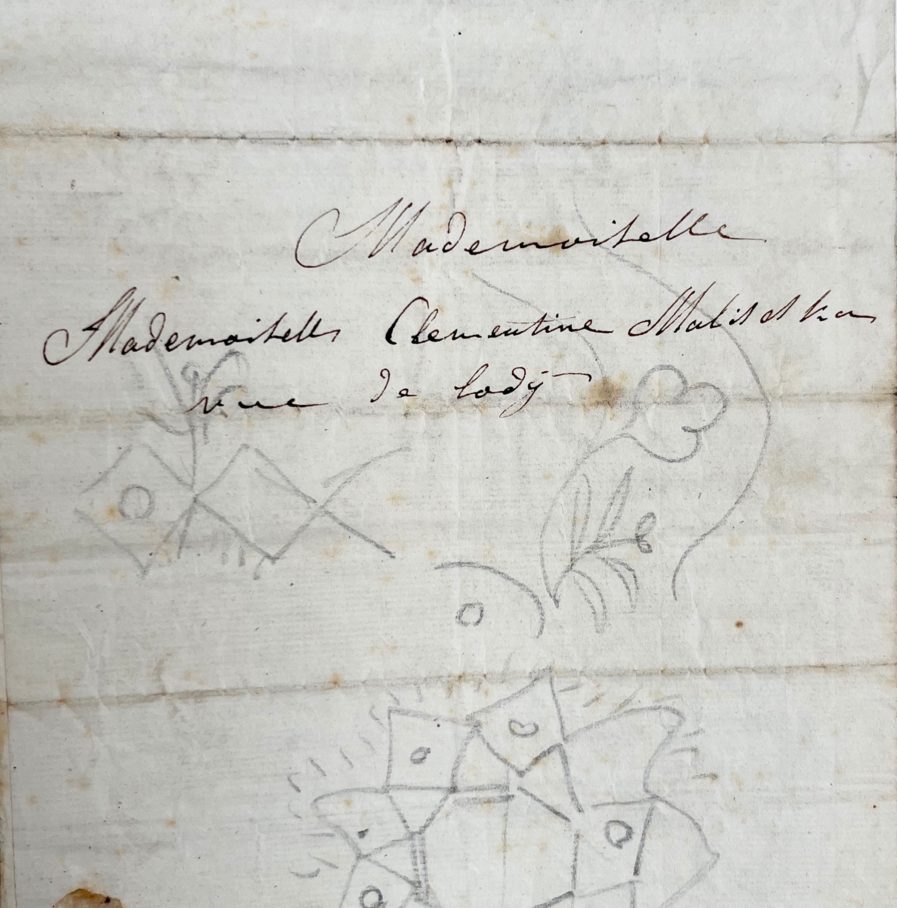 Mademoiselle
Mademoiselle Clementine
rue de lody